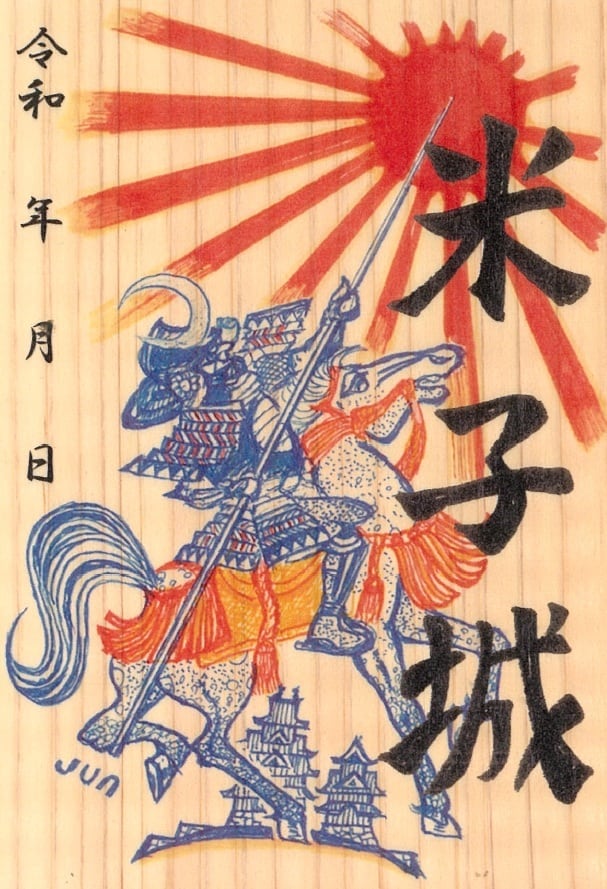 米子城
令和 年 月 日
Jun